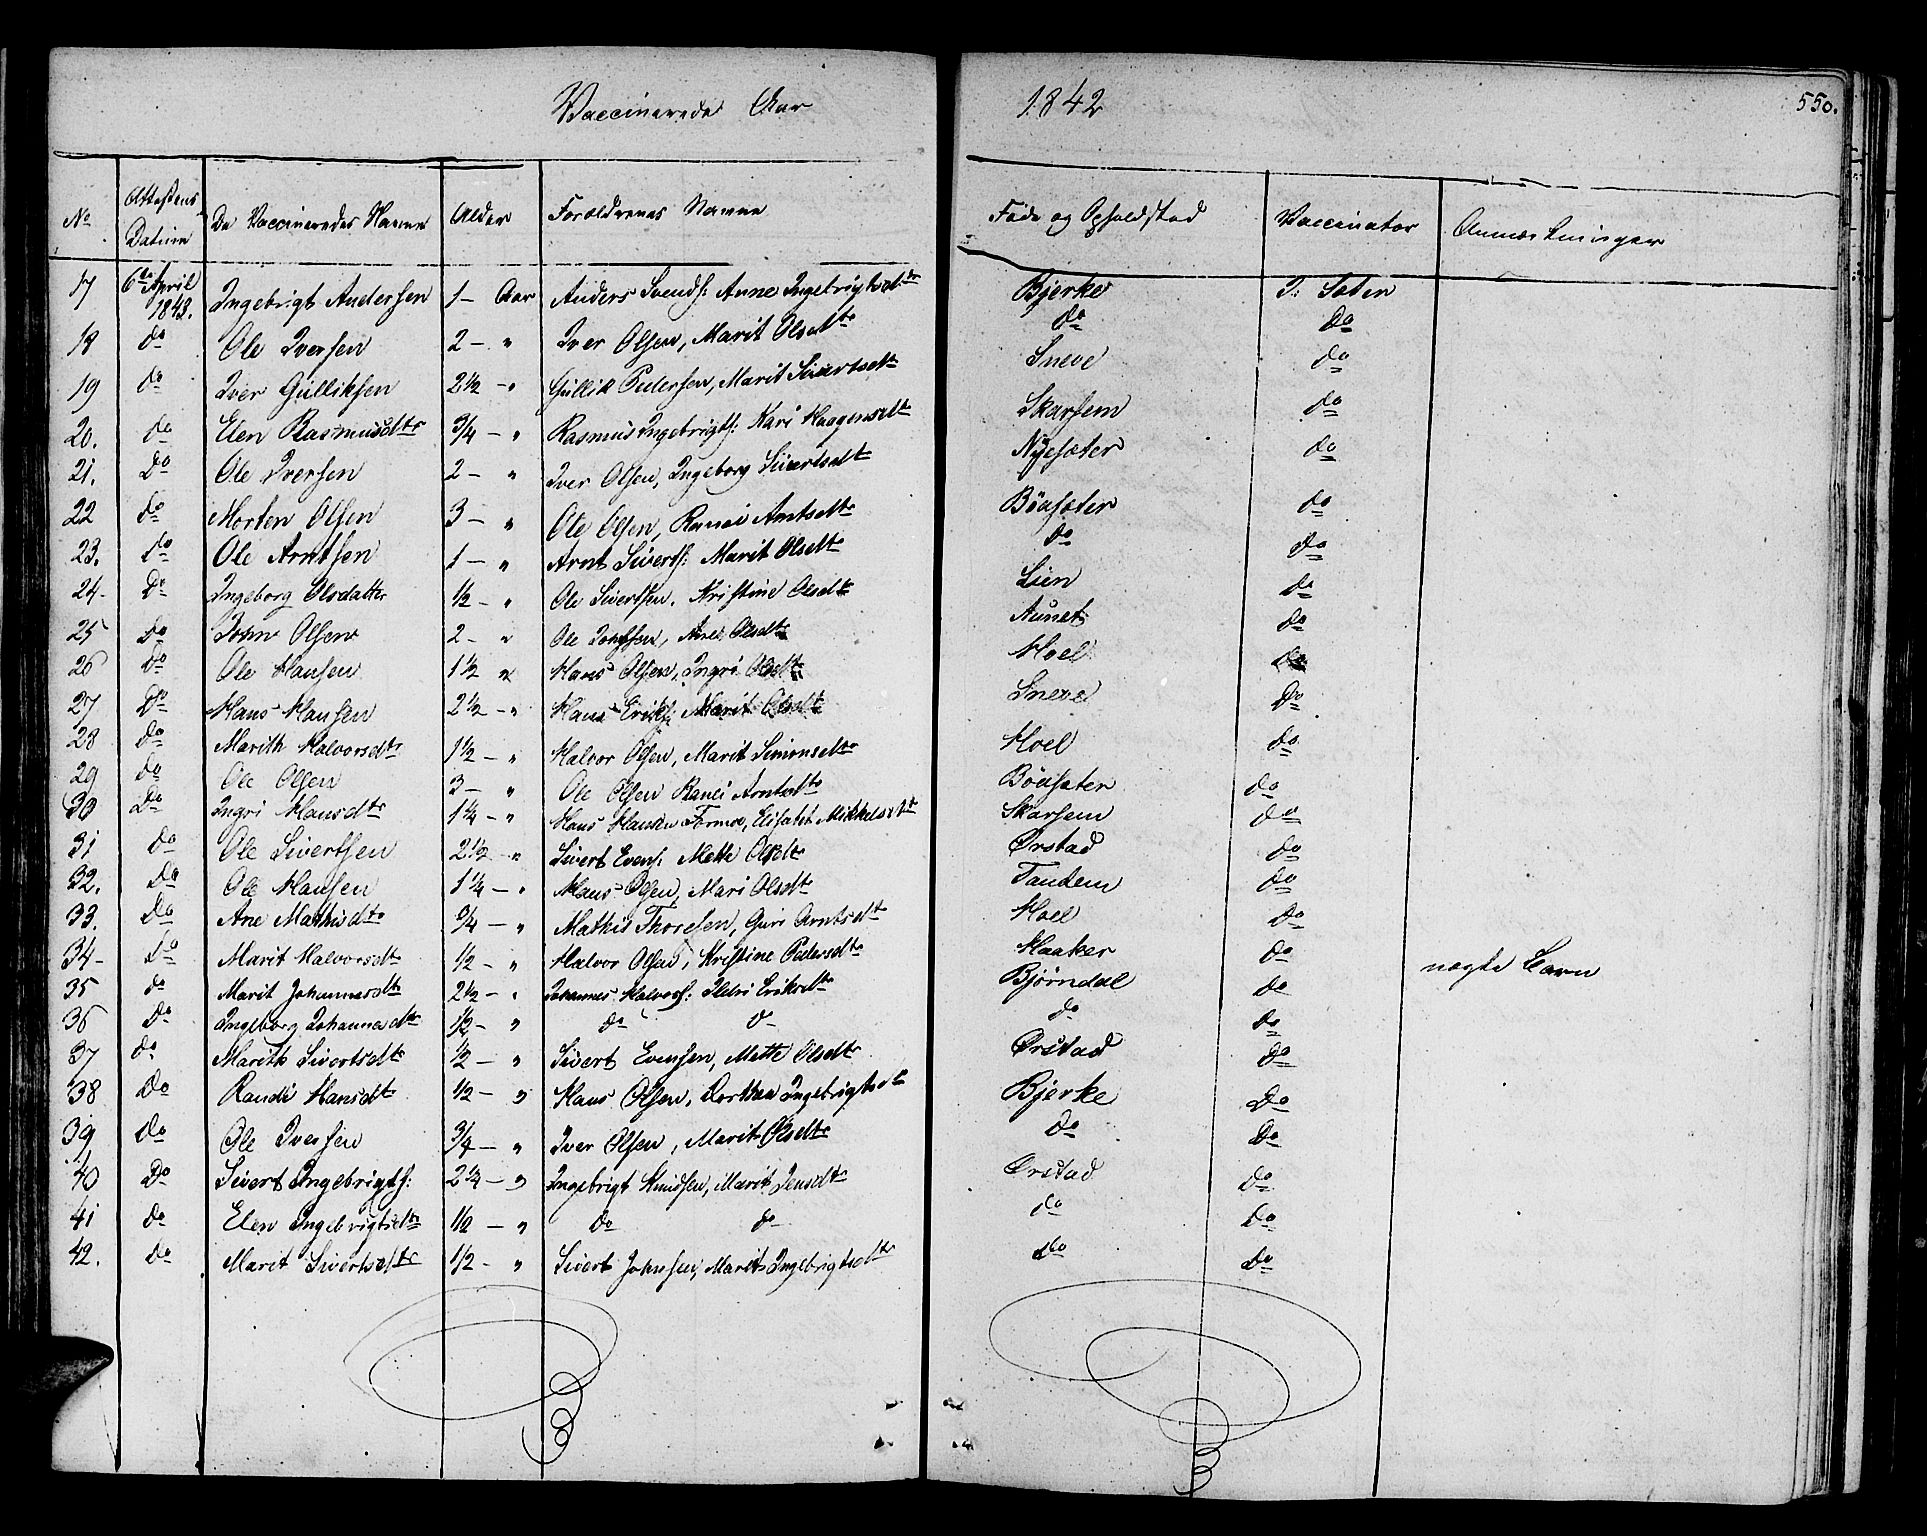 Vaccinerede Aar 1842 550.
No Attestens Datum De Vaccineredes Navne Alder Forældrenes Navne Føde og Opholdsted Vaccinator Anmærkninger
17 6te April 1843. Ingebrigt Andersen 1 - Aar Anders Svends: Anne Ingebrigtsdtr Bjerke J: Sæter
18 do Ole Iversen 2 - " Iver Olsen, Marit Olsdtr do do
19 do Iver Gulliksen 2 1/2 - " Gullik Pedersen, Marit Sivertsdtr Sneve do
20. do Elen Rasmusdtr 3/4 - " Rasmus Ingebrigts: Kari Haagensdtr Skarsem do
21. Do Ole Iversen 2 - " Iver Olsen, Ingeborg Sivertsdtr Nysæter do
22 do Morten Olsen 3 - " Ole Olsen, Ranei Arntsdtr Böasæter do
23. Do Ole Arntsen 1 - " Arnt Siverts: Marit Olsdtr do do
24 - Do Ingeborg Olsdatter 1/2 - " Ole Sivertsen, Kristine Olsdtr Lien do
25 Do John Olsen 2 - " Ole Johnsen, Ane Olsdtr Aunet do
26 Do Ole Hansen 1 1/2 " Hans Olsen, Ingri Olsdtr Hoel do
27 Do Hans Hansen 2 1/2 - " Hans Eriks: Marit Olsdtr Sneve Do
28 do Marith Halvorsdtr 1 1/2 - " Halvor Olsen, Marit Simonsdtr Hoel do
29 do Ole Olsen 3 - " Ole Olsen Ranei Arntsdtr Böasæter do
30 Do Ingri Hansdtr 1 1/4 - " Hans Hansen Formo, Elisabet Mikkelsdtr Skarsem do
31 do Ole Sivertsen 2 1/2 - " Sivert Evens: Mette Olsdtr Ørstad do
32. Do Ole Hansen 1 1/4 - " Hans Olsen, Mari Olsdtr Tandem do
33. Do Ane Mathisdtr 3/4 - " Mathis Thoresen, Guri Arntsdtr Hoel Do
34 - Do Marit Halvorsdtr 1/2 - " Halvor Olsen, Kristine Pedersdtr Haaker do uægte Barn
35 do Marit Johannesdtr 2 1/2 - " Johannes Halvors: Ildri Eriksdtr Bjørndal do
36 Do Ingeborg Johannesdtr 1/2 - " do do do do
37 do Marith Sivertsdtr 1/2 - " Sivert Evensen, Mette Olsdtr Ørstad do
38 Do Randi Hansdtr 1/2 - " Hans Olsen, Dorthea Ingebrigtsdtr Bjerke Do
39 do Ole Iversen 3/4 - " Iver Olsen, Marit Olsdtr do do
40 Do Sivert Ingebrigts: 2 1/4 - " Ingebrigt Knudsen, Marit Jensdtr Ørstad do
41 do Elen Ingebrigtsdtr 1/2 - " do do do do
42. do Marit Sivertsdtr 1/2 - " Sivert Johnsen, Marit Ingebrigtsdtr do Do